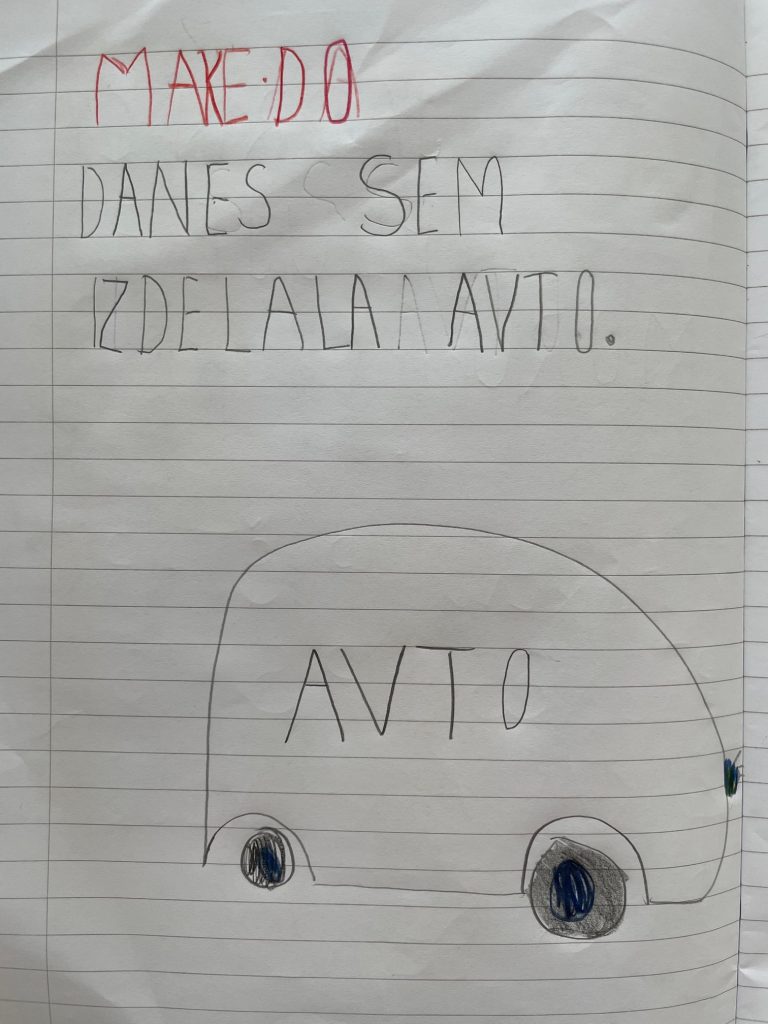 MAKE·DO
DANES SEM
IZDELALA AVTO.
AVTO